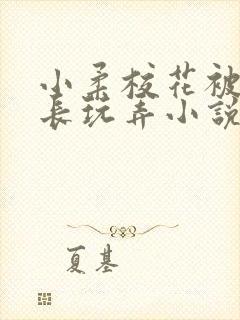 小柔校花被
长玩弄小說
夏基